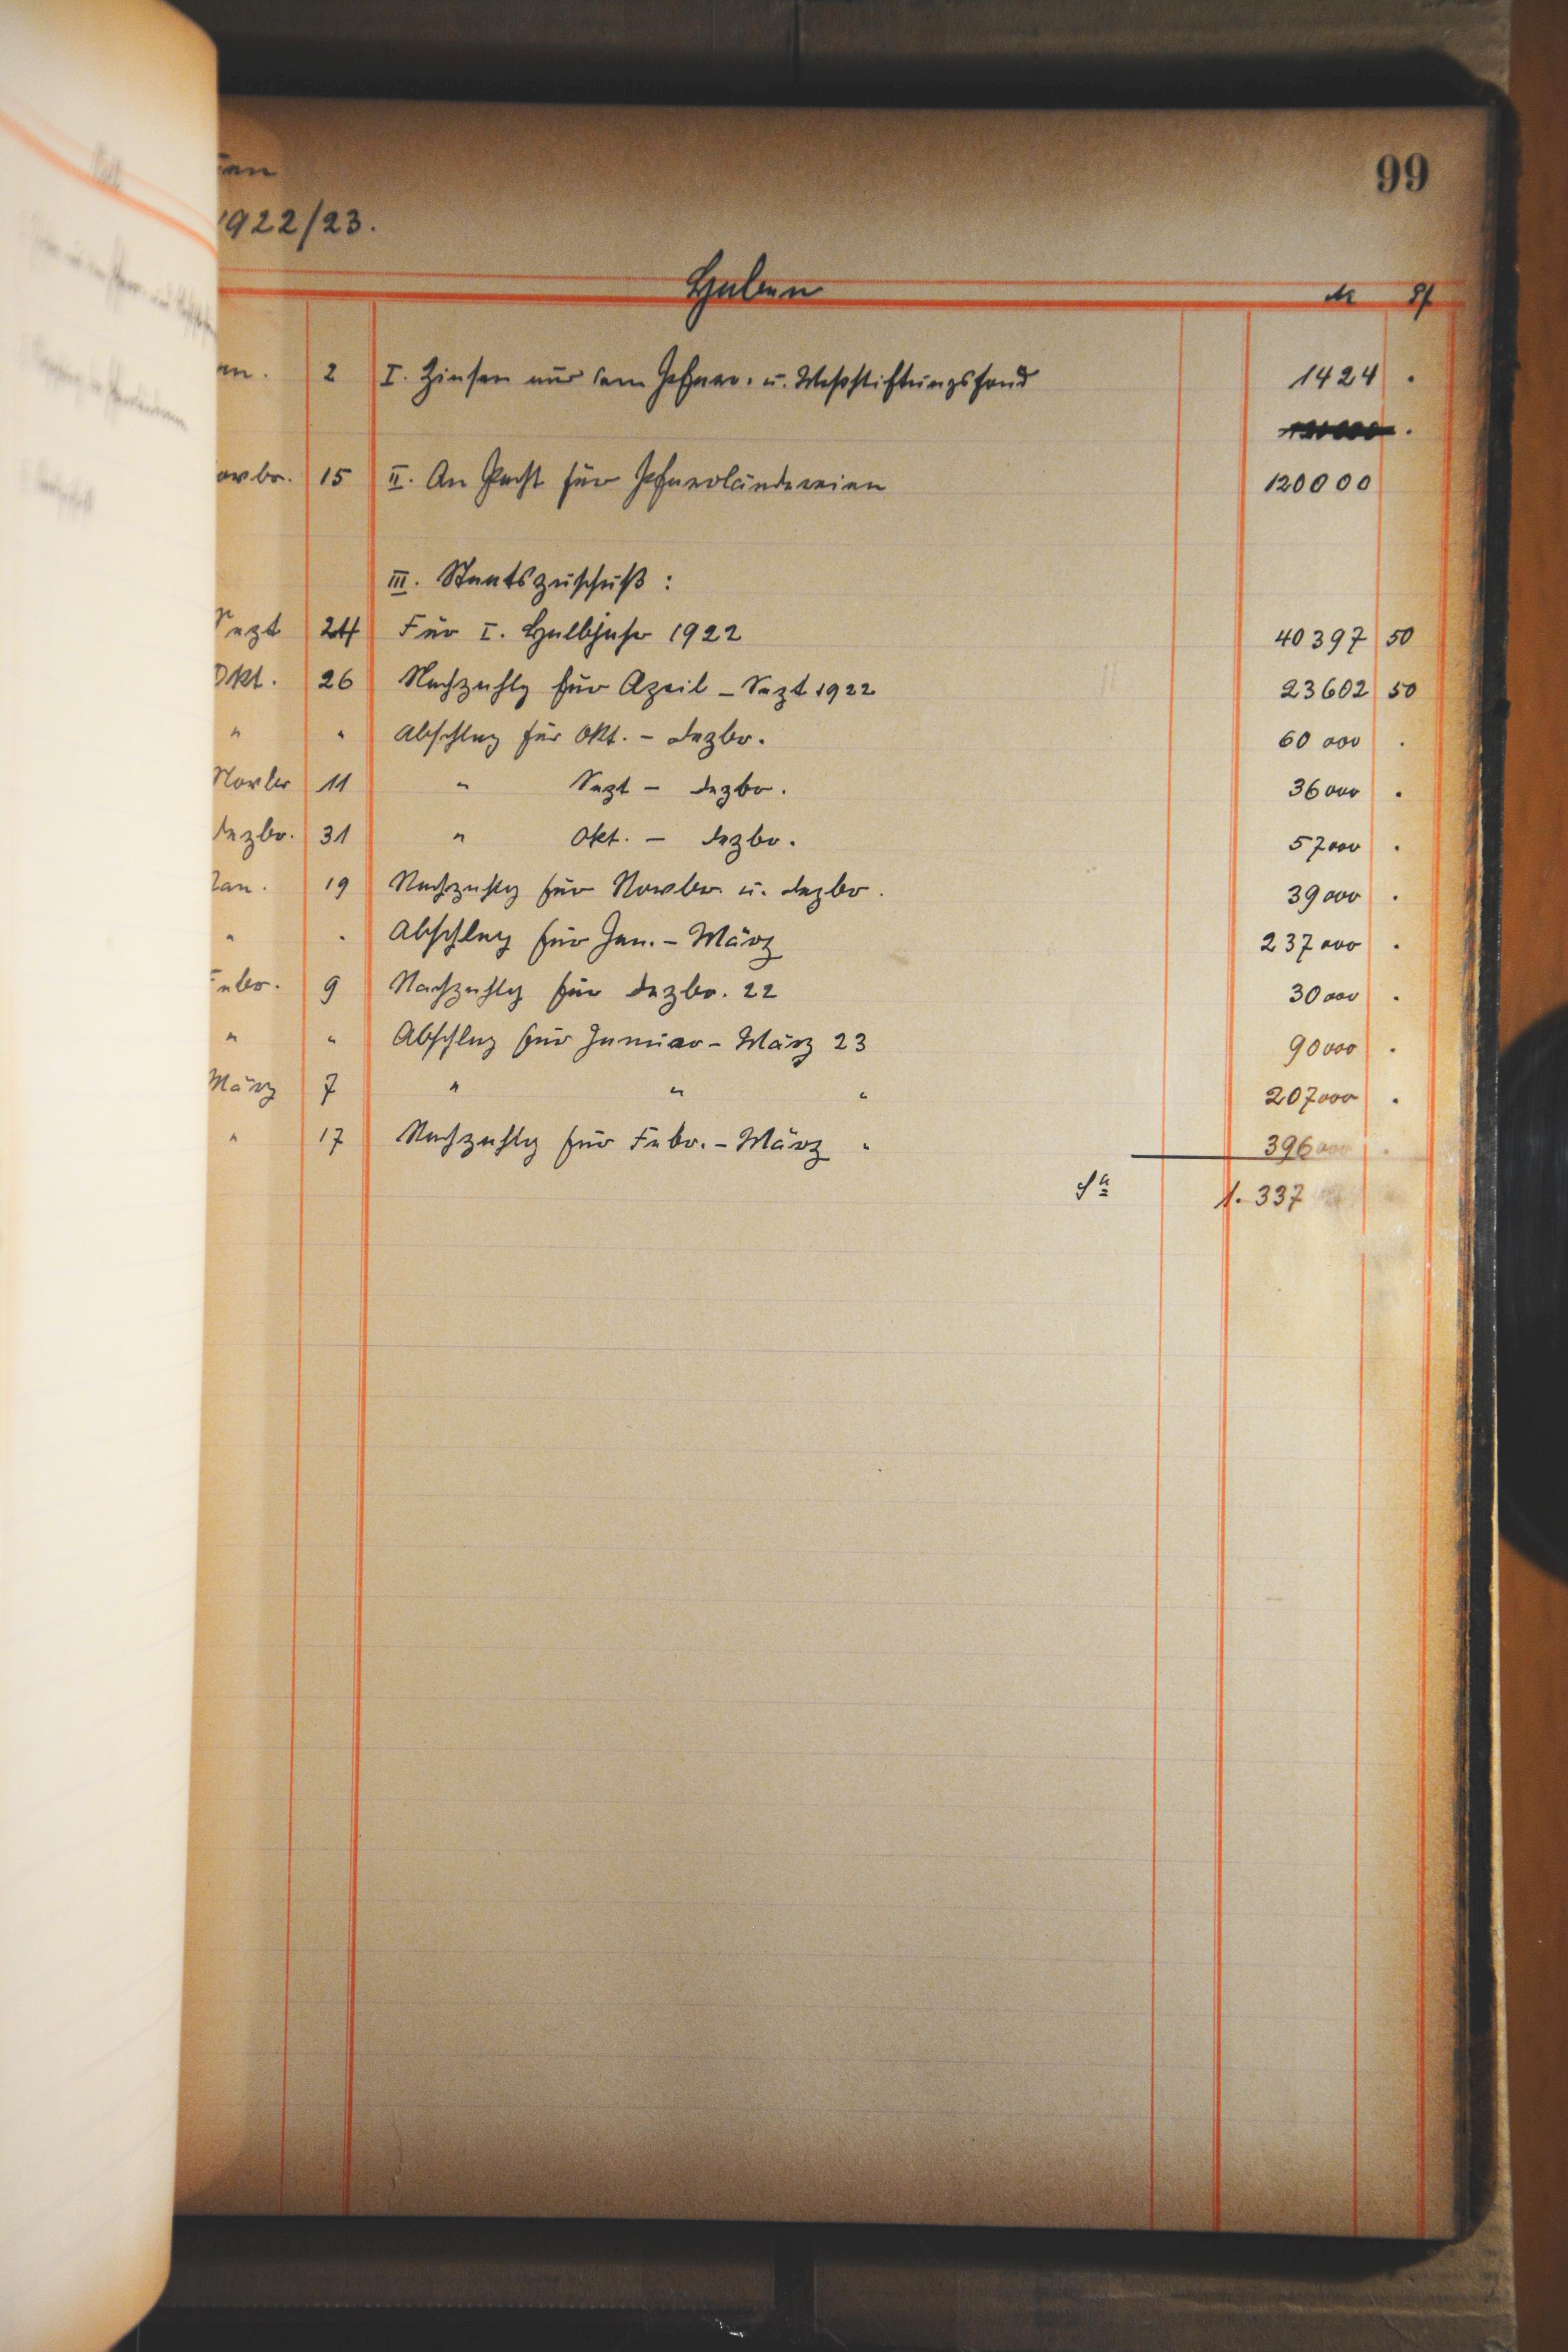 99
1922/23.
Haben
M Pf
2 I. Zinsen aus dem Pfarr- u. Meßstiftungsfond 1424 .
15 II. An Pacht für Pfarrländereien 120000
III. Staatszuschuß :
Sept 24 Für I. Halbjahr 1922 40397 50
Okt. 26 Nachzahlg für April – Sept 1922 23602 50
" " Abschlag für Okt. – Dezbr. 60 000 .
Novbr 11 " Sept – Dezbr. 36000 .
Dezbr. 31 " Okt. – Dezbr. 57000 .
Jan. 19 Nachzahlg für Novbr. u. Dezbr. 39000 .
" " Abschlag für Jan. – März 237000 .
Febr. 9 Nachzahlg für Dezbr. 22 30000 .
" " Abschlag für Januar – März 23 90000 .
März 7 " " " 207000 .
" 17 Nachzahlg für Febr. – März " 396000 .
Sa 1.337